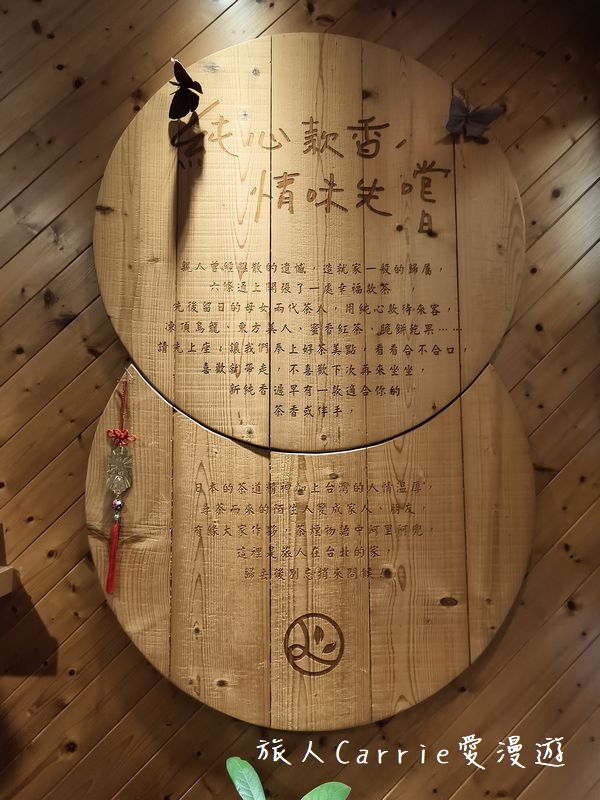 純心款香，
情味先嚐
日
親人曾經離散的遺憾，造就家一般的歸屬，
六條通上開張了一處幸福款茶，
先後留日的母女兩代茶人，用純心款待來客，
凍頂烏龍、東方美人、蜜香紅茶、脆餅乾果……
請先上座，讓我們承上好茶美點，看看合不合口，
喜歡就帶走，不喜歡下次再來坐坐，
新純香遲早有一款適合你的
茶香或伴手，
日本的茶道精神加上台灣的人情溫厚，
尋茶而來的陌生人變成家人、朋友，
有緣大家作夥，茶煙物語中阿里阿兜，
這裡是旅人在台北的家，
歸去後別忘捎來問候！
旅人Carrie愛漫遊